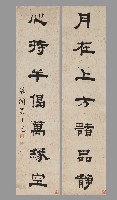 月在上方諸品靜
心持半偈萬緣空